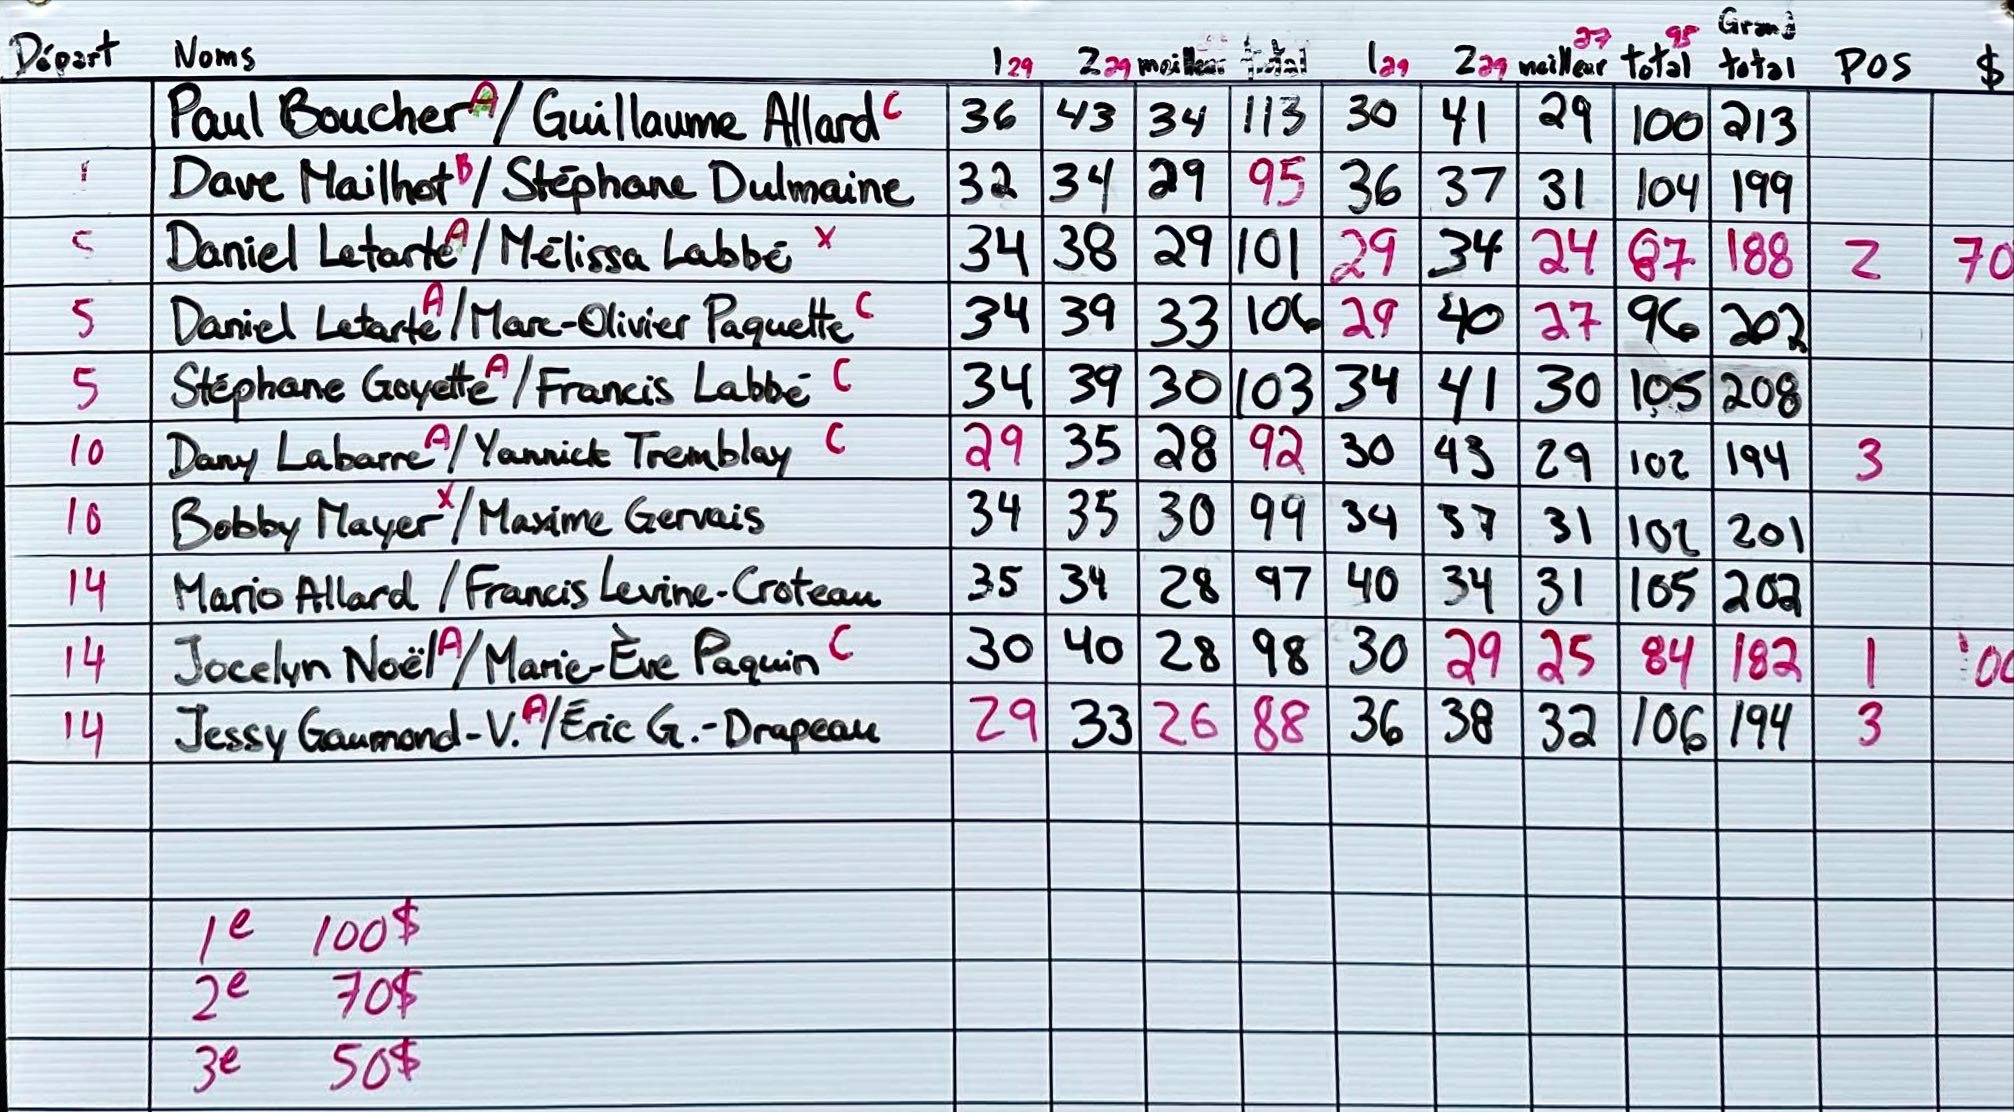 Départ Noms 1 29 2 29 meilleur total 1 29 2 29 meilleur 27 total 95 Grand total POS $
Paul Boucher A / Guillaume Allard C 36 43 34 113 30 41 29 100 213
Dave Mailhot B / Stéphane Dulmaine 32 34 29 95 36 37 31 104 199
Daniel Letarte A / Mélissa Labbé X 34 38 29 101 29 34 24 87 188 2 70
5 Daniel Letarte A / Marc-Olivier Paquette C 34 39 33 106 29 40 27 96 202
5 Stéphane Goyette A / Francis Labbé C 34 39 30 103 34 41 30 105 208
10 Dany Labarre A / Yannick Tremblay C 29 35 28 92 30 43 29 102 194 3
10 Bobby Mayer X / Maxime Gervais 34 35 30 99 34 37 31 102 201
14 Mario Allard / Francis Levine-Croteau 35 34 28 97 40 34 31 105 202
14 Jocelyn Noël A / Marie-Ève Paquin C 30 40 28 98 30 29 25 84 182 1 100
14 Jessy Gaumond-V. A / Éric G.-Drapeau 29 33 26 88 36 38 32 106 194 3
1e 100$
2e 70$
3e 50$